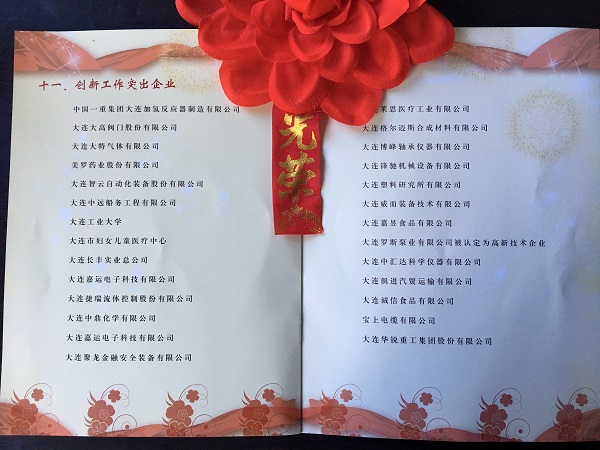 十一、创新工作突出企业
中国一重集团大连加氢反应器制造有限公司
大连大高阀门股份有限公司
大连大特气体有限公司
美罗药业股份有限公司
大连智云自动化装备股份有限公司
大连中远船务工程有限公司
大连工业大学
大连市妇女儿童医疗中心
大连长丰实业总公司
大连嘉运电子科技有限公司
大连捷瑞流体控制股份有限公司
大连中鼎化学有限公司
大连嘉运电子科技有限公司
大连聚龙金融安全装备有限公司
光荣
莱恩医疗工业有限公司
大连格尔迈斯合成材料有限公司
大连博峰轴承仪器有限公司
大连锋驰机械设备有限公司
大连塑料研究所有限公司
大连威而装备技术有限公司
大连嘉昱食品有限公司
大连罗斯泵业有限公司被认定为高新技术企业
大连中汇达科学仪器有限公司
大连俱进汽贸运输有限公司
大连诚信食品有限公司
宝上电缆有限公司
大连华锐重工集团股份有限公司